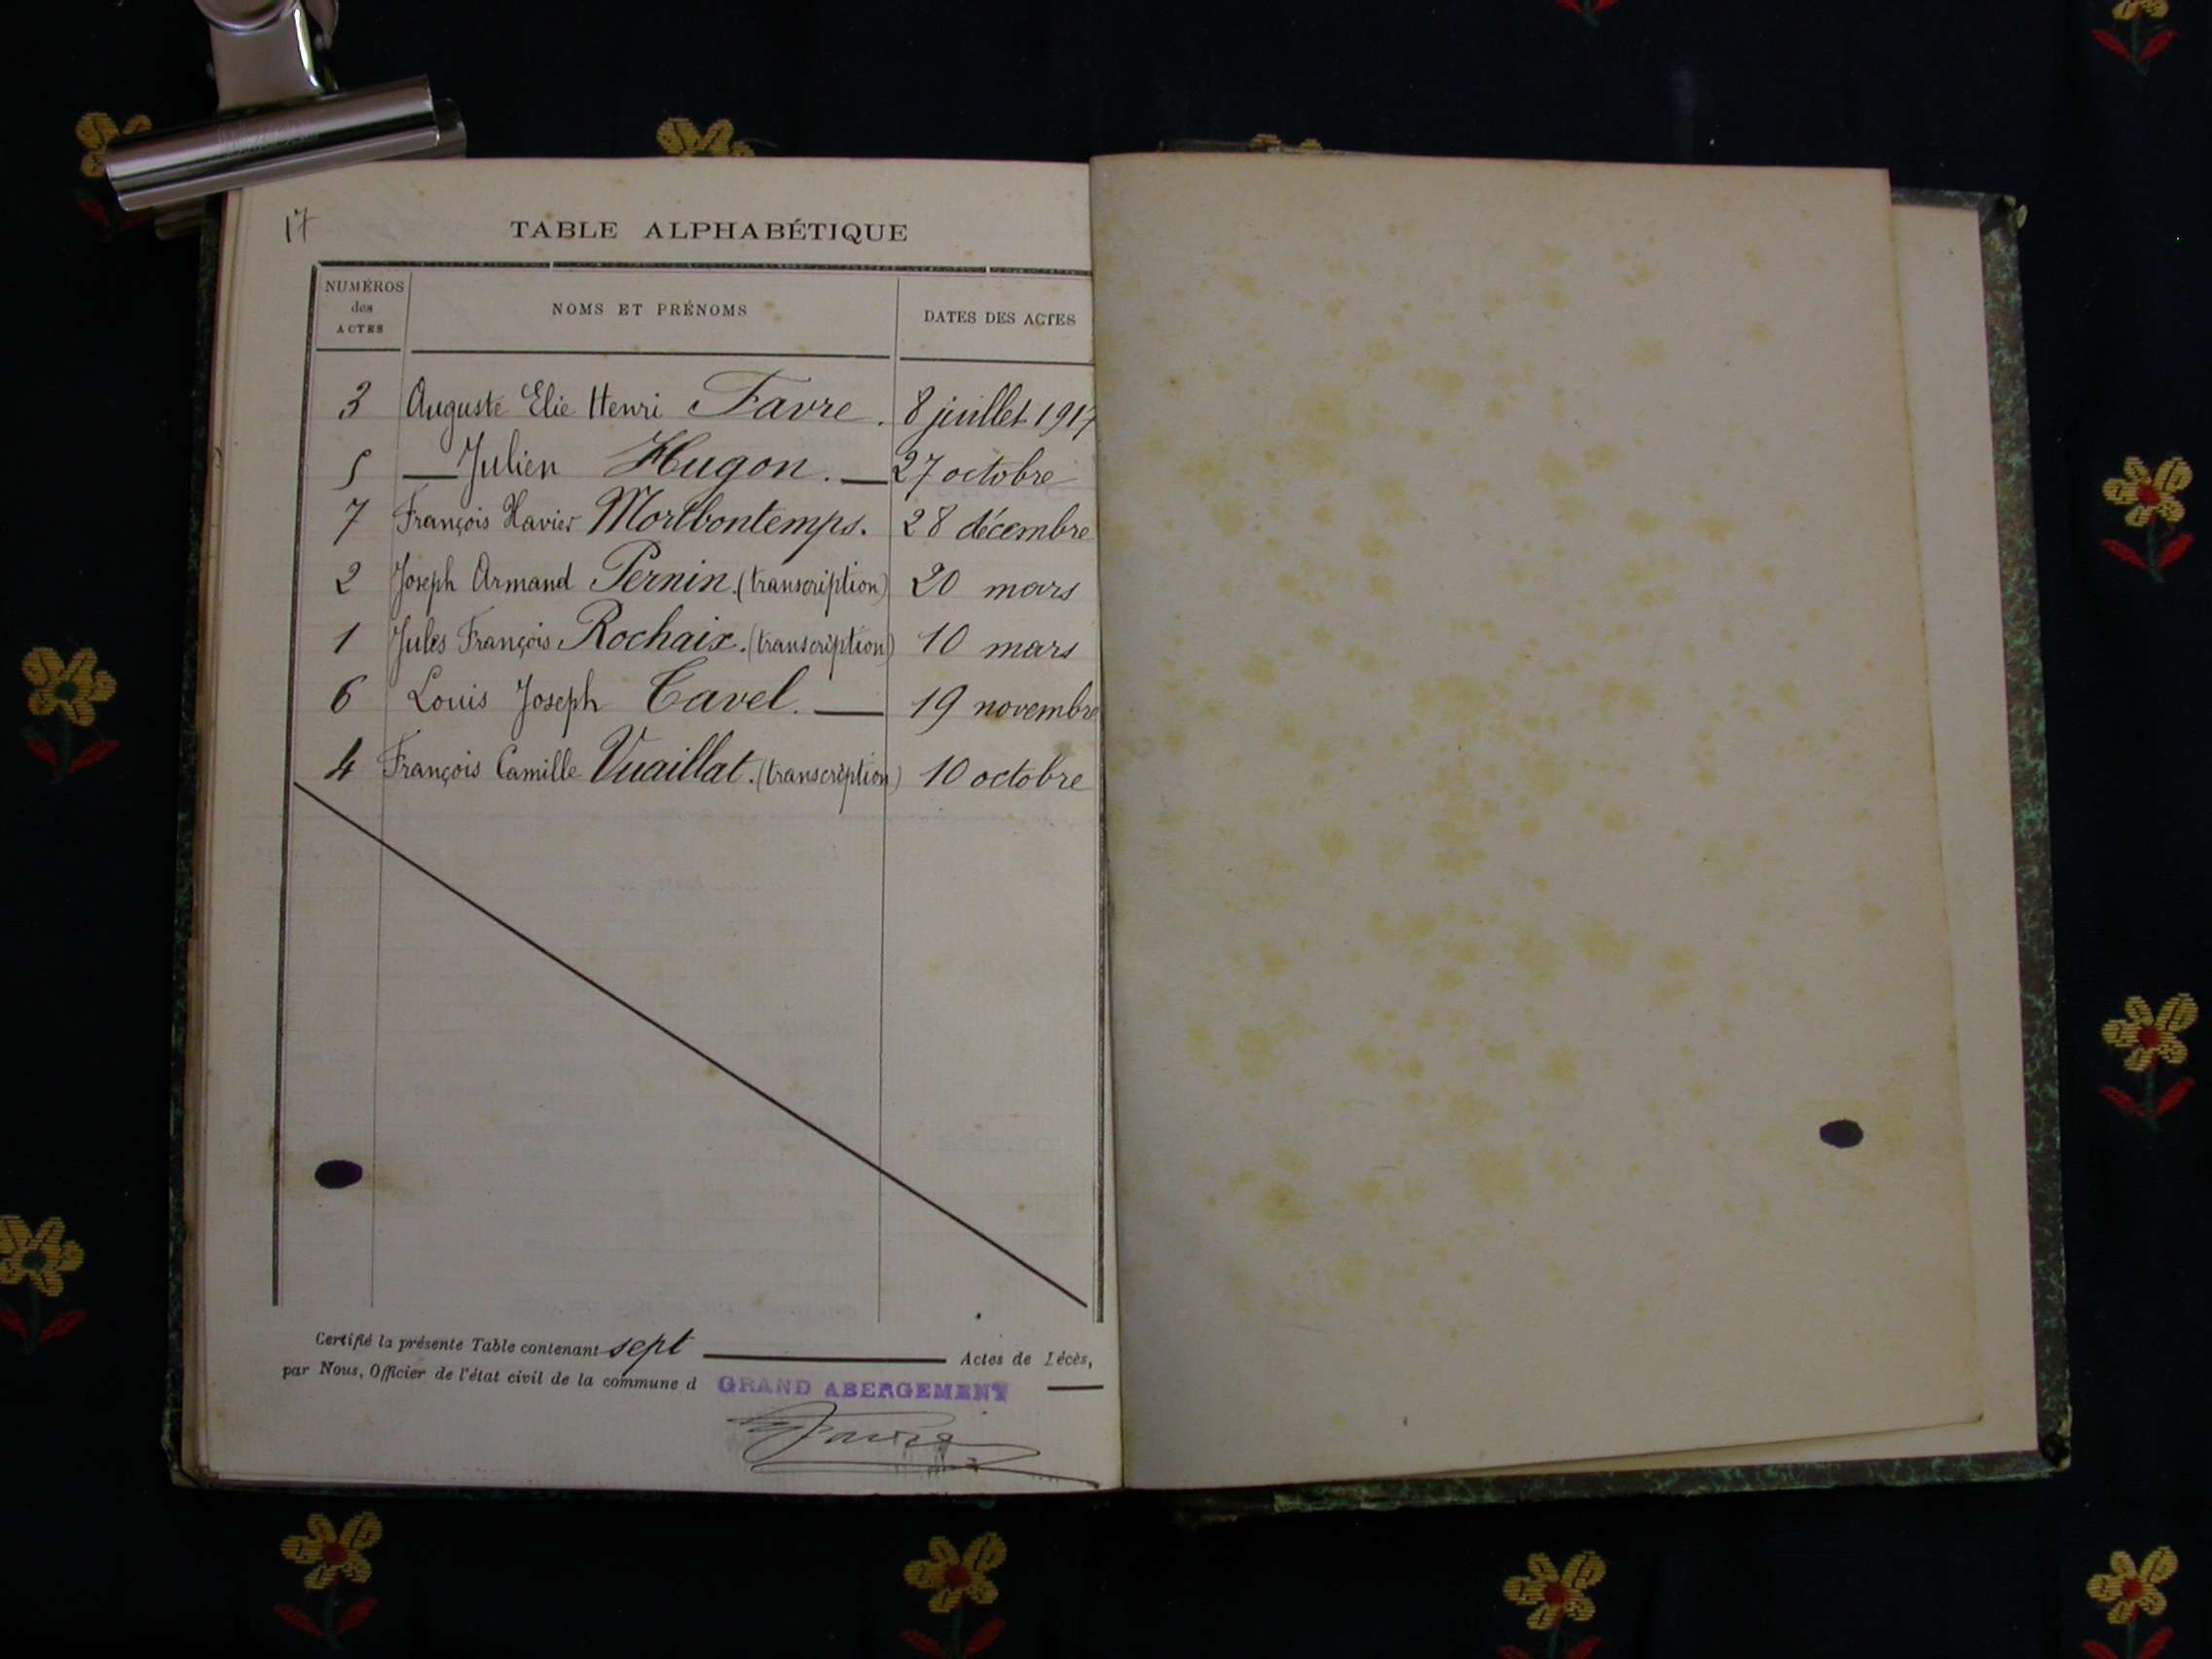 17
TABLE ALPHABÉTIQUE
NUMÉROS des ACTES
NOMS ET PRÉNOMS
DATES DES ACTES
3 Auguste Elie Henri Favre. 8 juillet 1917
5 — Julien Hugon. — 27 octobre
7 François Xavier Mortbontemps. 28 décembre
2 Joseph Armand Pernin. (transcription) 20 mars
1 Jules François Rochaix. (transcription) 10 mars
6 Louis Joseph Tavel. — 19 novembre
4 François Camille Vuaillat. (transcription) 10 octobre
Certifié la présente Table contenant sept Actes de Décès,
par Nous, Officier de l'état civil de la commune d GRAND ABERGEMENT
Favre